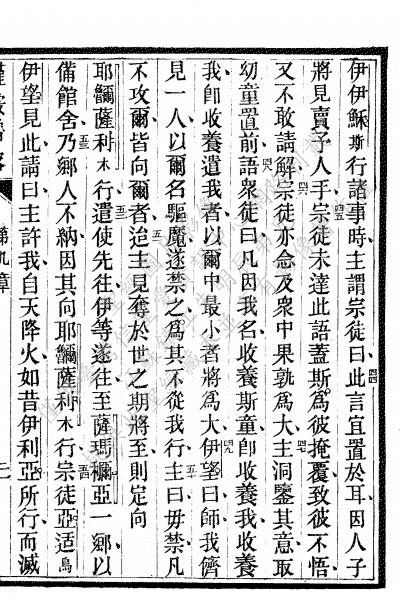 伊伊穌斯行諸事時主謂宗徒曰四四此言宜置於耳因人子
將見賣于人手四五宗徒未達此語蓋斯爲彼掩覆致彼不悟
又不敢請解四六宗徒亦念及衆中果孰爲大四七主洞鑒其意取
幼童置前四八語衆徒曰凡因我名收養斯童卽收養我收養
我卽收養遣我者以爾中最小者將爲大四九伊望曰師我儕
見一人以爾名驅魔遂禁之爲其不從我行五十主曰毋禁凡
不攻爾皆向爾者五一迨主見奪於世之期將至則定向
耶禰薩利木行五二遣使先往伊等遂往至薩瑪禰亞一鄉以
備館舍五三乃鄉人不納因其向耶禰薩利木行五四宗徒亞适烏
伊望見此請曰主許我自天降火如昔伊利亞所行而滅
第九章
二